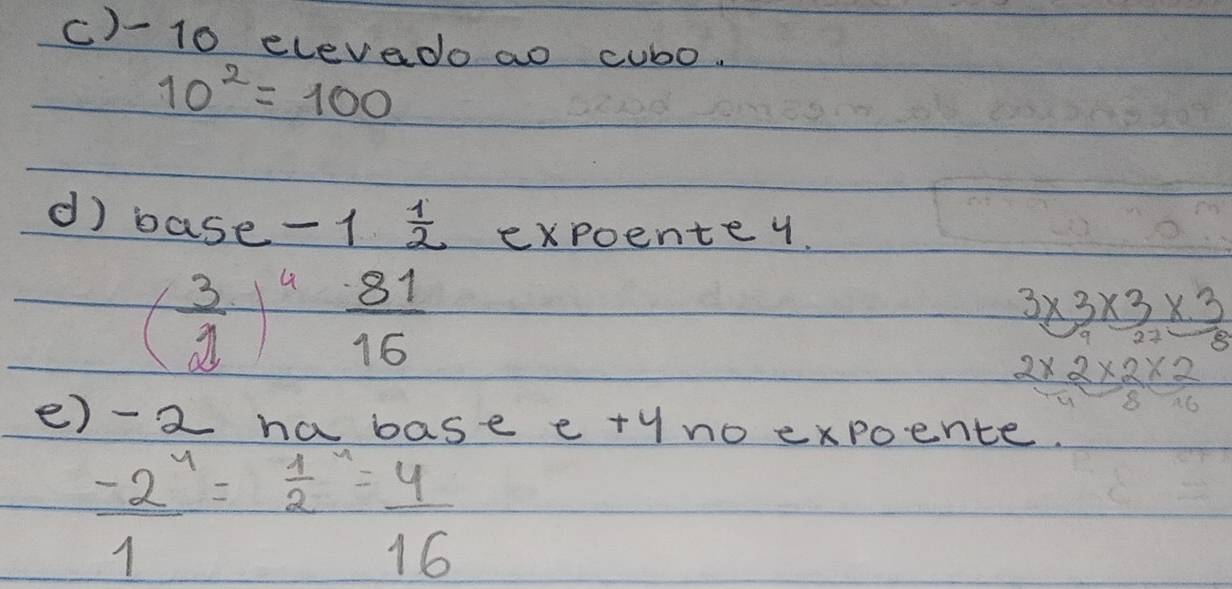 c) -10 elevado ao cubo.
10² = 100
d) base -1 1/2 expoente 4.
(3/2)⁴ 81/16
3x3x3x3
9 27 8
2x2x2x2
4 8 16
e) -2 na base e +4 no expoente.
-2⁴/1 = 1/2⁴ = 4/16